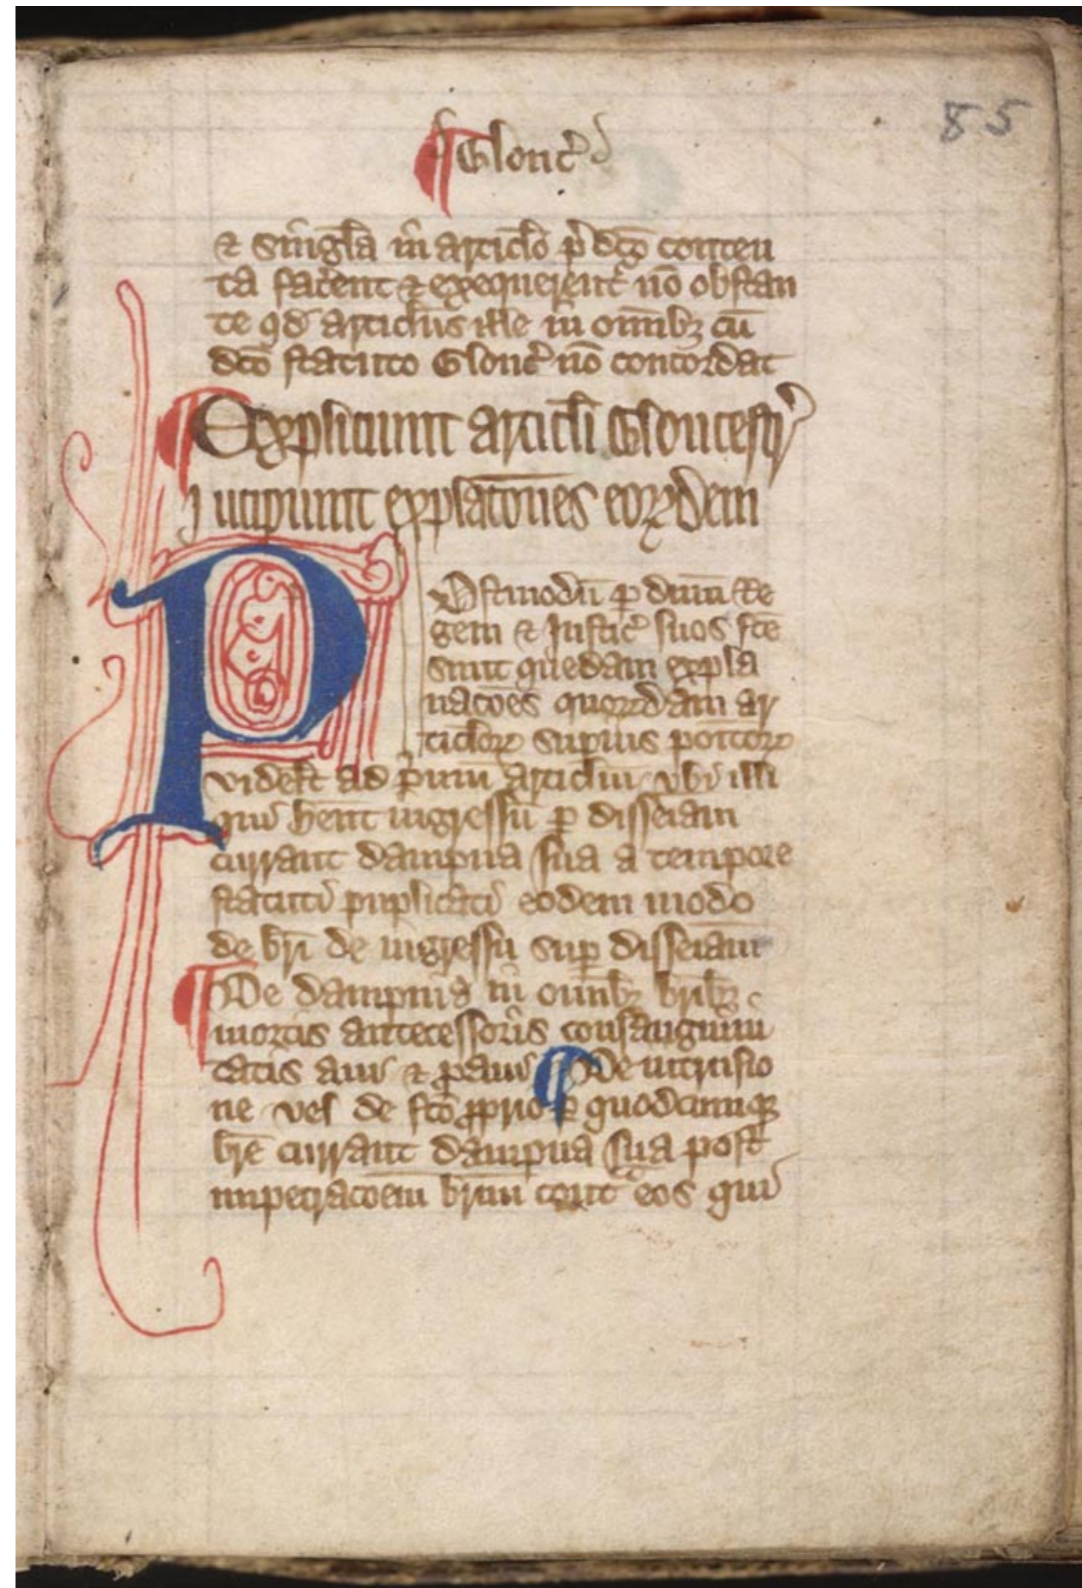 85
¶ Glouc̃
⁊ singl̃a in articl̃o p̃dc̃o conten
ta fac̃ent ⁊ exequerent᷑ nõ obstan
te qd̃ articl̃us ille in om̃ibꝫ cũ
dc̃o statuto Glouc̃ nõ concordat
¶ Expliciunt articl̃i Gloucestr̃
Incipiunt explac̃ones eoꝝdem
Postmodũ ꝑ dñm Re
gem ⁊ Justic̃ suos fc̃e
sunt quedam expla
nac̃oes quorũdam ar
ticl̃oꝝ supius po͠itoꝝ
videl̃t ad p̃mum Articl̃m vbi illi
qui hẽnt ingressũ ꝑ disseiam
currant dampna sua a tempore
statuti puplicati eodem modo
de br̃i de ingressu sup̱ disseiam̃
¶ De dampnis in om̃ibꝫ br̃ibꝫ
mortis antecessoris consanguini
tatis aui ⁊ ꝓaui ¶ De intrusio
ne vel de fc̃o ꝓprio ꝑ quodcumqꝫ
br̃e currant dampna sua post
impetrac̃oem br̃ium cont̃ eos qui